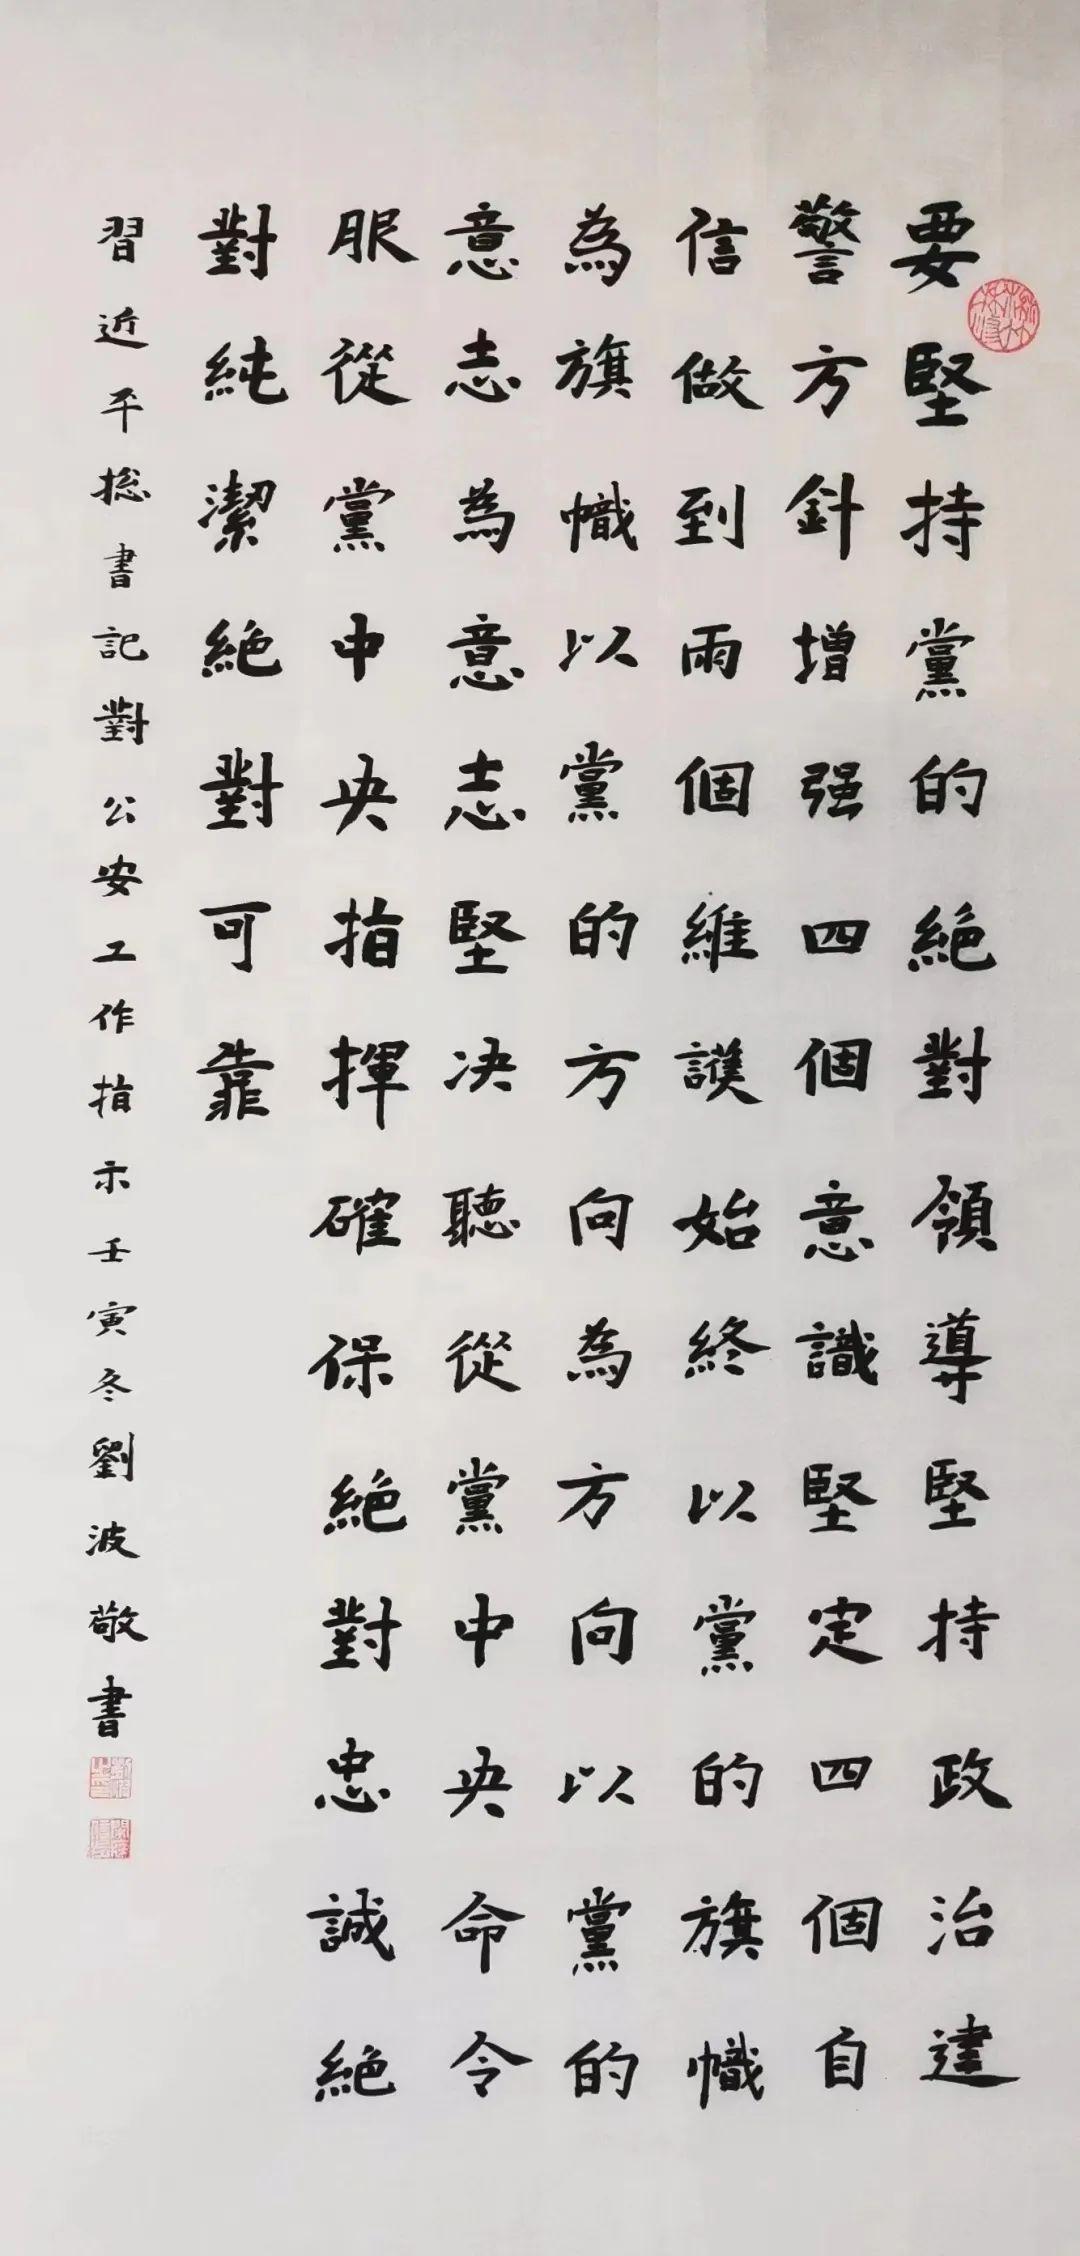 要堅持黨的絕對領導堅持政治建
警方針增强四個意識堅定四個自
信做到兩個維護始終以黨的旗幟
為旗幟以黨的方向為方向以黨的
意志為意志堅决聽從黨中央命令
服從黨中央指揮確保絕對忠誠絕
對純潔絕對可靠
習近平総書記對公安工作指示壬寅冬劉波敬書